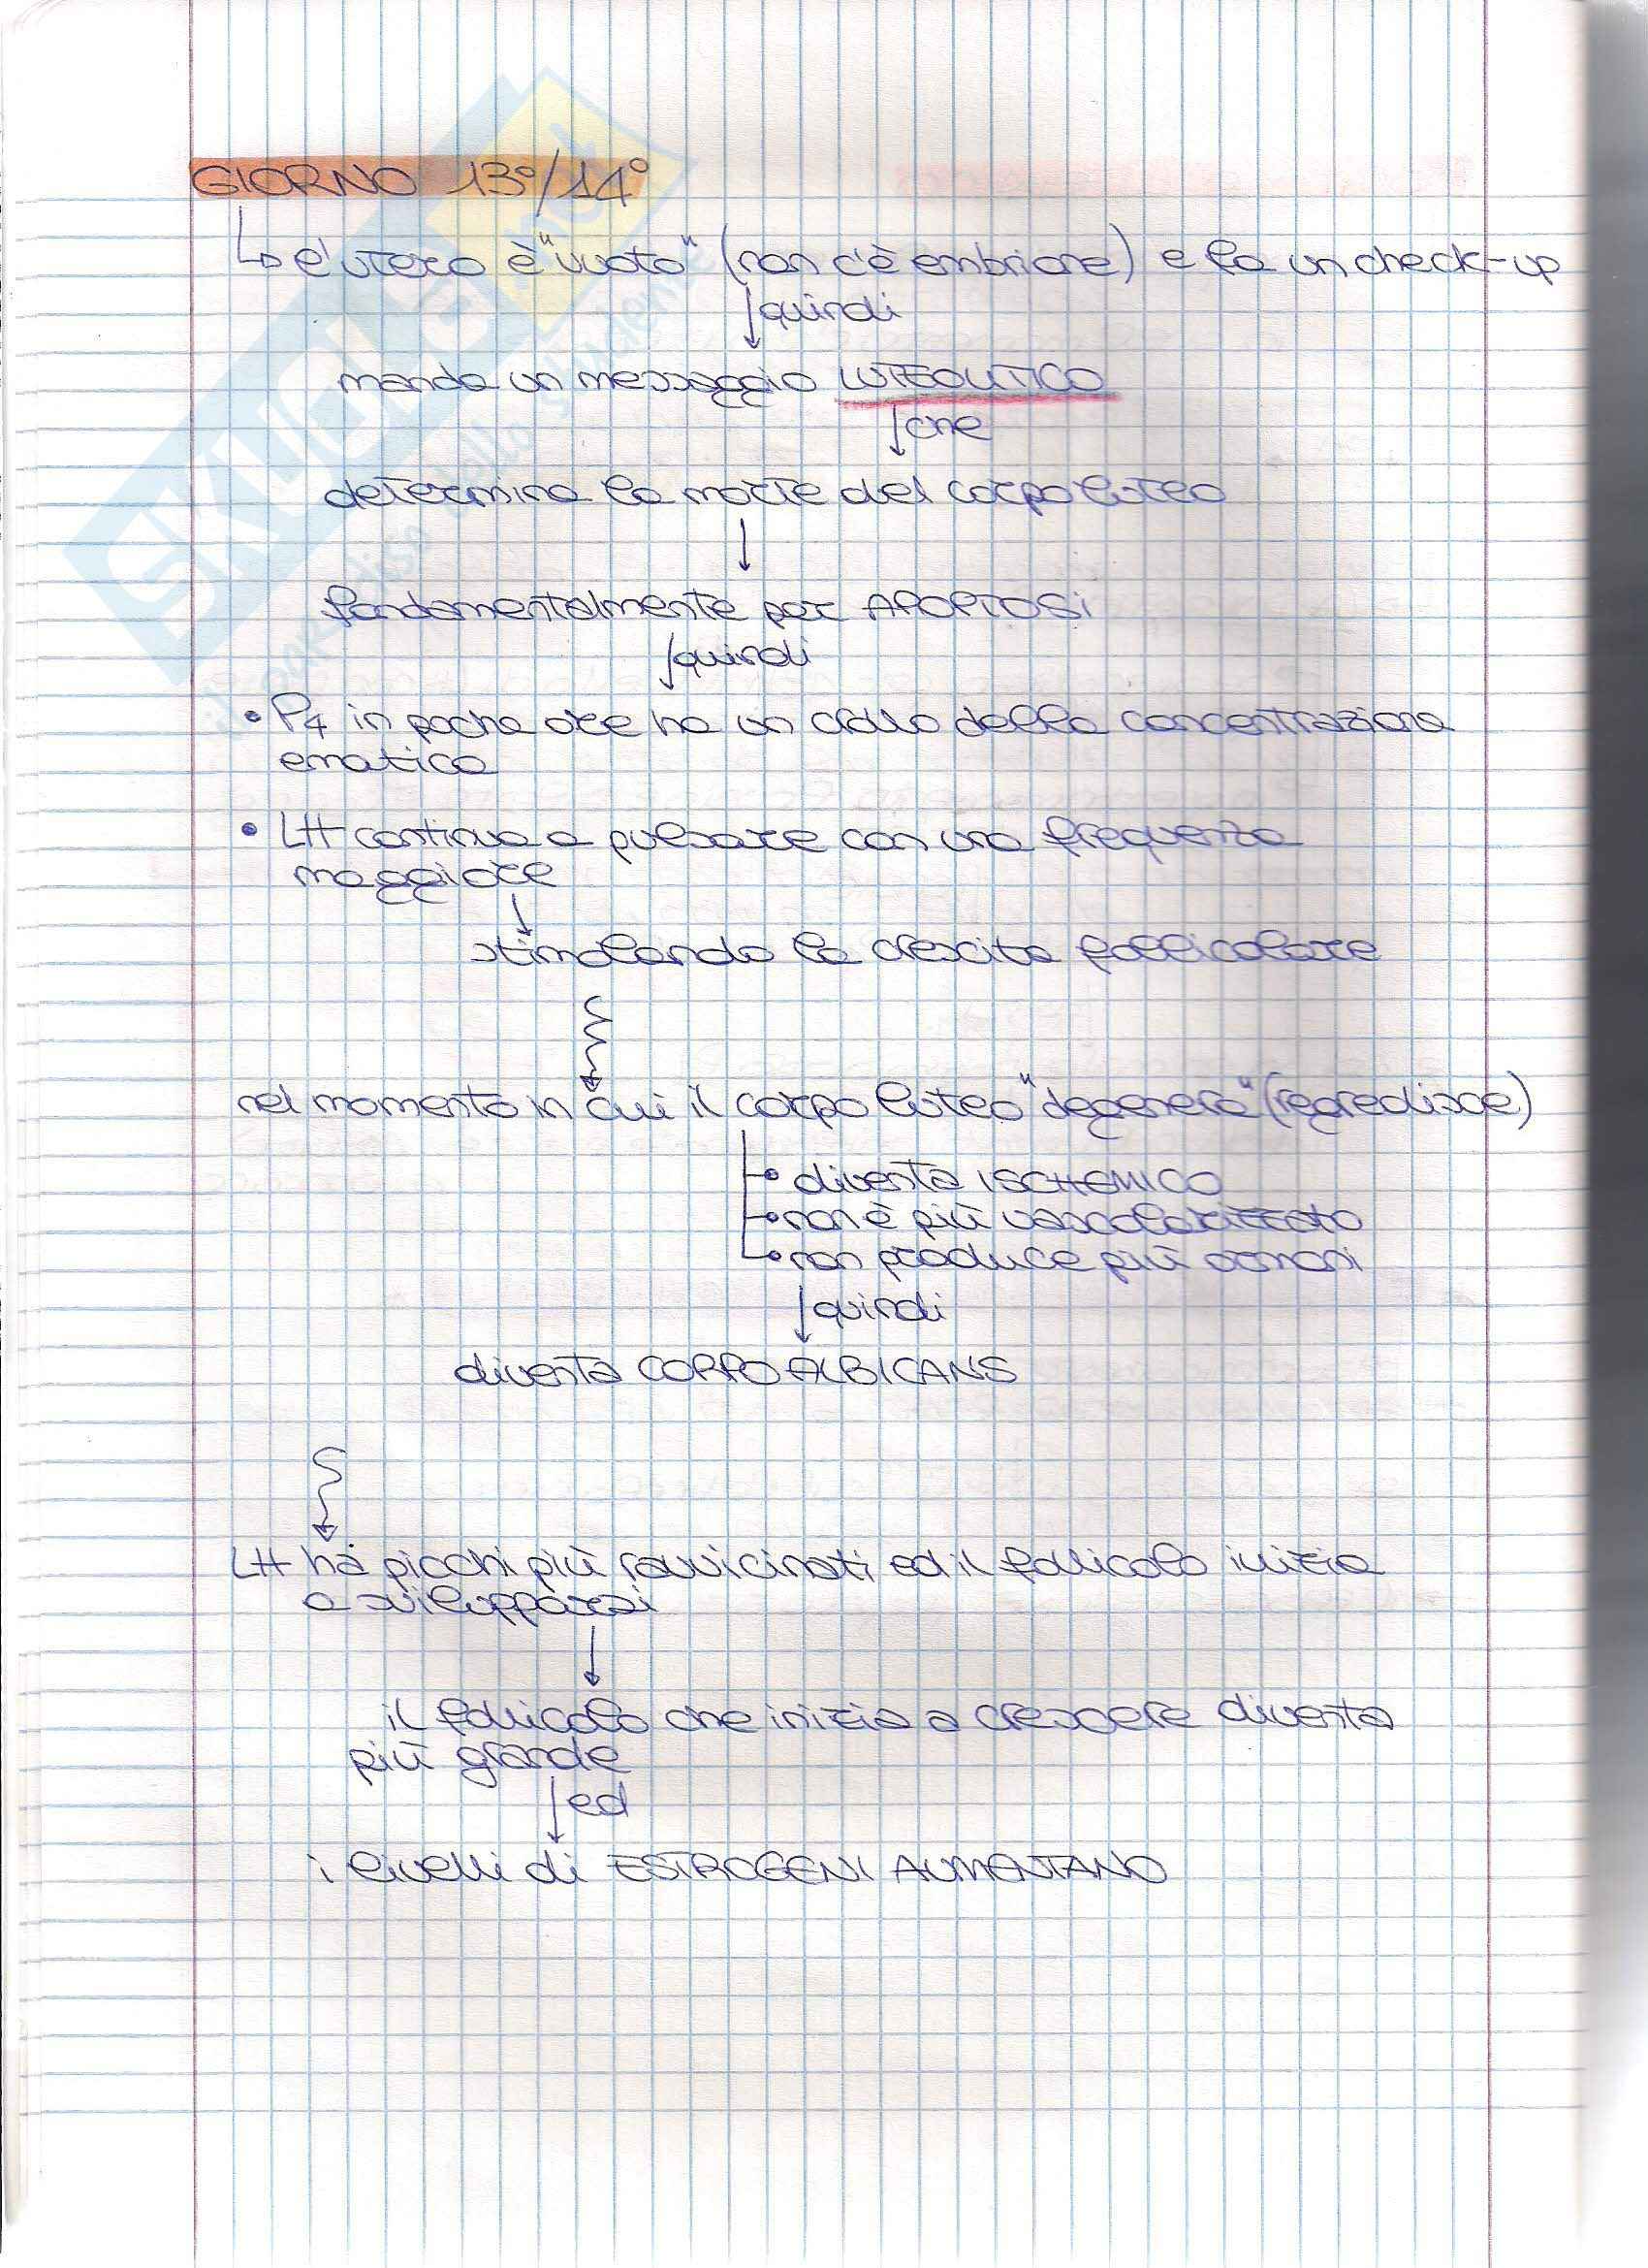 GIORNO 13°/14°
l'utero è "vuoto" (non c'è embrione) e fa un check-up
quindi
manda un messaggio LUTEOLITICO
che
determina la morte del corpo luteo
fondamentalmente per APOPTOSI
quindi
• P4 in poche ore ha un crollo della concentrazione
ematica
• LH continua a pulsare con una frequenza
maggiore
stimolando la crescita follicolare
nel momento in cui il corpo luteo "degenera" (regredisce)
• diventa ISCHEMICO
• non è più vascolarizzato
• non produce più ormoni
quindi
diventa CORPO ALBICANS
LH ha picchi più ravvicinati ed il follicolo inizia
a svilupparsi
il follicolo che inizia a crescere diventa
più grande
ed
i livelli di ESTROGENI AUMENTANO
SKUOLA.net
il paradiso dello studente